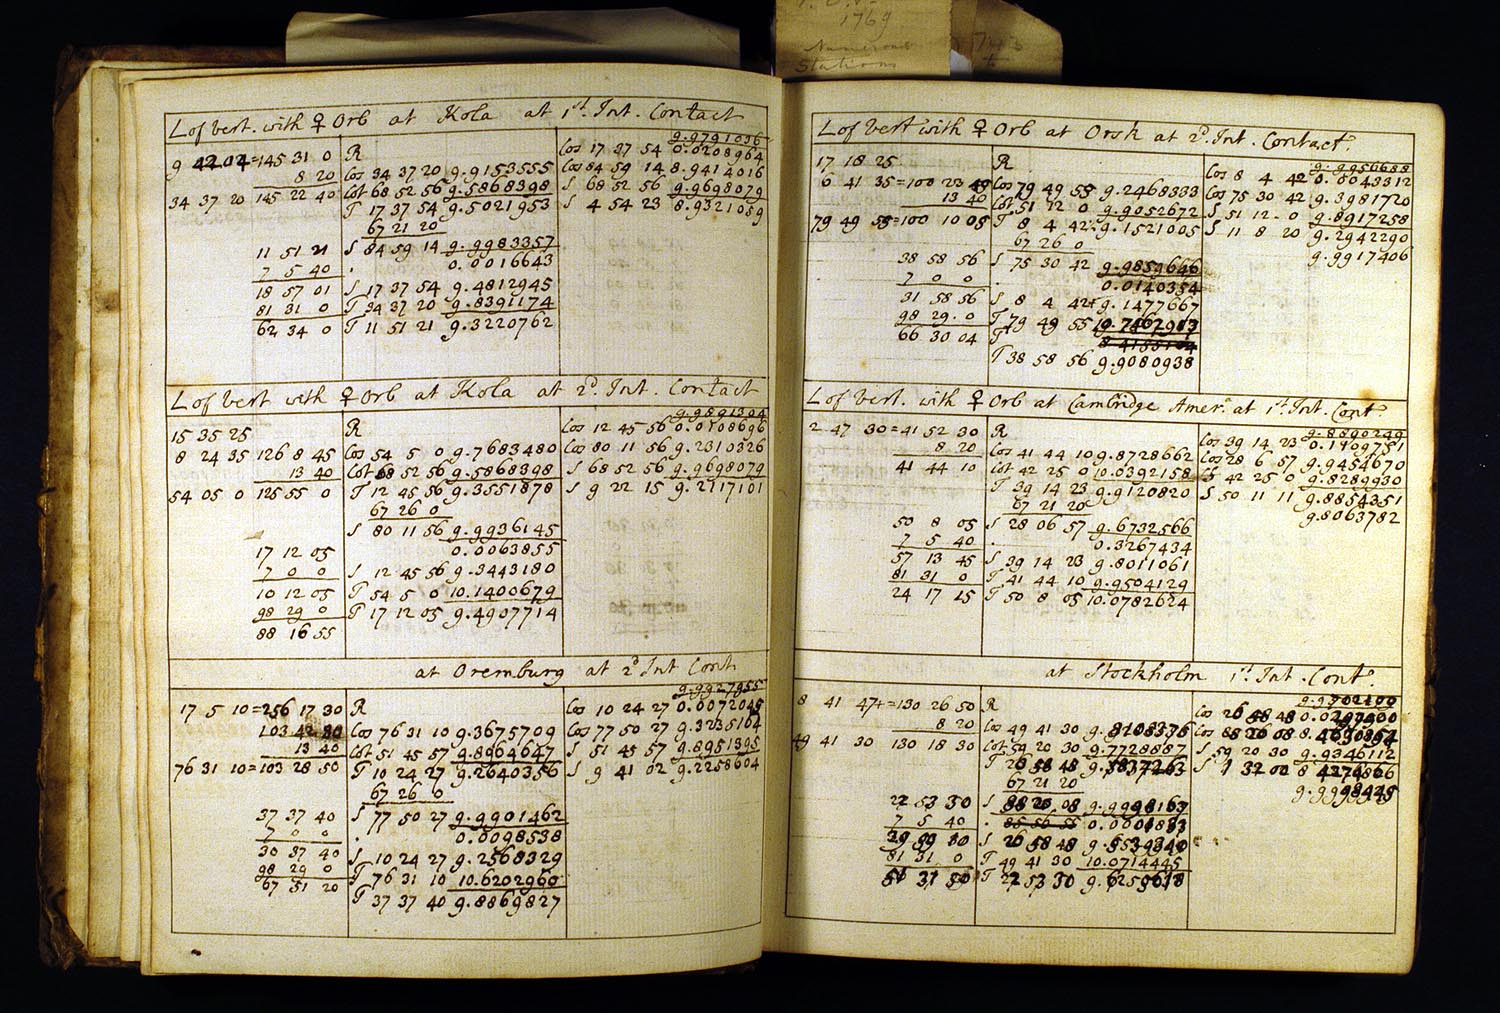 1769
Numerous
Stations
L of Vert. with ♀ Orb at Kola at 1st. Int. Contact
9 42 04=145 31 0 R Cos 17 37 54 9.9791036
8 20 Cos 34 37 20 9.9153555 0.0208964
34 37 20 145 22 40 Cot 68 52 56 9.5868398 Cos 84 59 14 8.9414016
T 17 37 54 9.5021953 S 68 52 56 9.9698079
67 21 20 S 4 54 23 8.9321059
11 51 21 S 84 59 14 9.9983357
7 5 40 0.0016643
18 57 01 S 17 37 54 9.4812945
81 31 0 T 34 37 20 9.8391174
62 34 0 T 11 51 21 9.3220762
L of Vert with ♀ Orb at Kola at 2d. Int. Contact
15 35 25 R Cos 12 45 56 9.9891304
8 24 35 126 8 45 Cos 54 5 0 9.7683480 0.0108696
13 40 Cot 68 52 56 9.5868398 Cos 80 11 56 9.2310326
54 05 0 125 55 0 T 12 45 56 9.3551878 S 68 52 56 9.9698079
67 26 0 S 9 22 15 9.2117101
S 80 11 56 9.9936145
17 12 05 0.0063855
7 0 0 S 12 45 56 9.3443180
10 12 05 T 54 5 0 10.1400679
98 29 0 T 17 12 05 9.4907714
88 16 55
at Oremburg at 2d Int Cont.
17 5 10=256 17 30 R Cos 10 24 27 9.9927955
103 42 30 Cos 76 31 10 9.3675709 0.0072045
13 40 Cot 51 45 57 9.8964647 Cos 77 50 27 9.3235104
76 31 10=103 28 50 T 10 24 27 9.2640356 S 51 45 57 9.8951395
67 26 0 S 9 41 02 9.2258604
37 37 40 S 77 50 27 9.9901462
7 0 0 0.0098538
30 37 40 S 10 24 27 9.2568329
98 29 0 T 76 31 10 10.6202960
67 51 20 T 37 37 40 9.8869827
L of Vert with ♀ Orb at Orsk at 2d. Int. Contact.
17 18 25 R Cos 8 4 42 9.9956688
6 41 35=100 23 45 Cos 79 49 55 9.2468333 0.0043312
13 40 Cot 51 12 0 9.9052672 Cos 75 30 42 9.3981720
79 49 55=100 10 05 T 8 4 42 9.1521005 S 51 12 0 9.8917258
67 26 0 S 11 8 20 9.2942290
38 58 56 S 75 30 42 9.9859646 9.9917406
7 0 0 0.0140354
31 58 56 S 8 4 42 9.1477667
98 29 0 T 79 49 55
66 30 04 T 38 58 56 9.9080938
L of Vert. with ♀ Orb at Cambridge Amera. at 1st. Int. Cont.
2 47 30=41 52 30 R Cos 39 14 23 9.8890249
8 20 Cos 41 44 10 9.8728662 0.1109751
41 44 10 Cot 42 25 0 10.0392158 Cos 28 6 57 9.9454670
T 39 14 23 9.9120820 S 42 25 0 9.8289930
67 21 20 S 50 11 11 9.8854351
50 8 05 S 28 06 57 9.6732566 9.8063782
7 5 40 0.3267434
57 13 45 S 39 14 23 9.8011061
81 31 0 T 41 44 10 9.9504129
24 17 15 T 50 8 05 10.0782624
at Stockholm 1st. Int. Cont.
8 41 47+=130 26 50 R
8 20 Cos 49 41 30 9.8108376
49 41 30 130 18 30 Cot 59 20 30 9.7728887 S 59 20 30 9.9346112
67 21 20
22 53 30
7 5 40
81 31 0 T 49 41 30 10.0714445
T 22 53 30